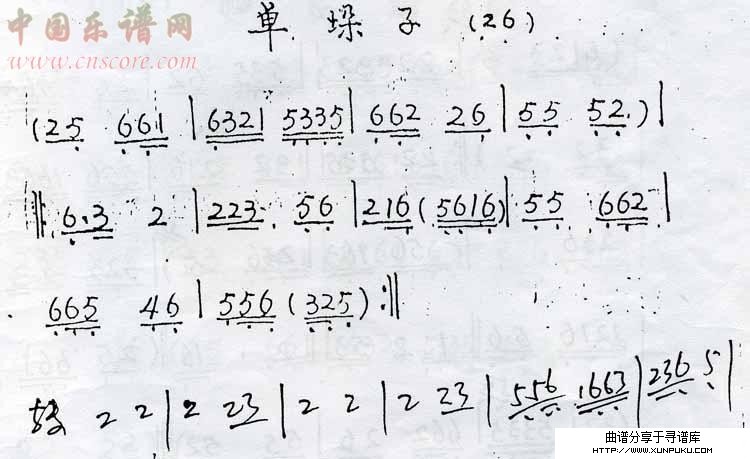 单垛子 (26)
中国乐谱网
www.cnscore.com
(25 661 | 6321 5335 | 662 26 | 55 52) |
‖: 6·3 2 | 223 56 | 216 (5616) | 55 662 |
665 46 | 556 (325) :‖
2 2 | 2 23 | 2 2 | 2 23 | 556 1663 | 236 5 |
曲谱分享于寻谱库
HTTP://WWW.XUNPUKU.COM